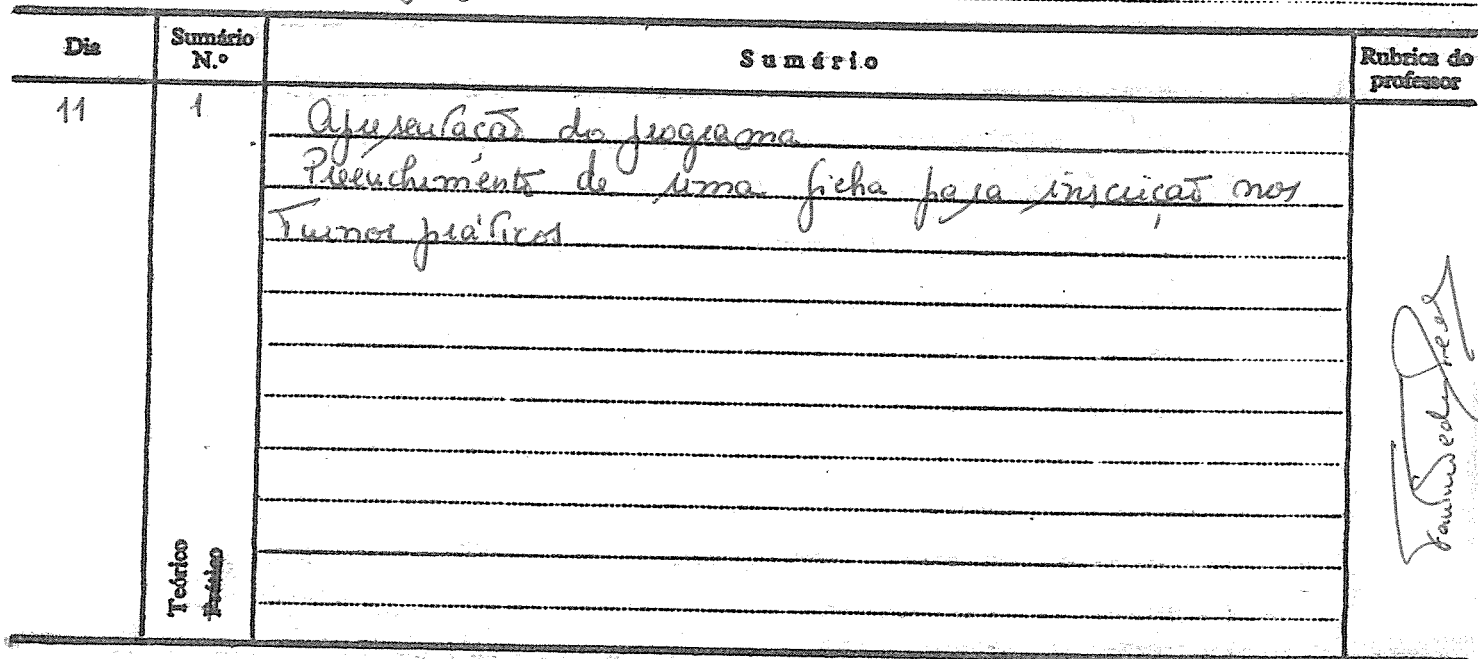 Dia
Sumário N.º
Sumário
Rubrica do professor
11
1
Apresentação do programa
Preenchimento de uma ficha para inscrição nos
Turnos práticos
Teórico
Prático